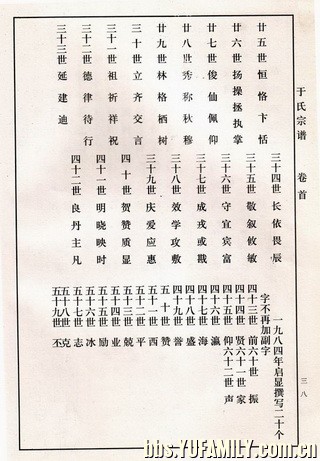 于氏宗谱 卷首 三八
廿五世恒恪卞恬
廿六世扬操拯执掌
廿七世俊仙佩仰
廿八世秀称秋穆
廿九世林格栖树
三十世立齐交言
三十一世祖祈祥祝
三十二世德律待行
三十三世延建迪
三十四世长依畏辰
三十五世敬叙攸敏
三十六世守宜宾富
三十七世成戎或戬
三十八世效学攻敷
三十九世庆爱应惠
四十世贺赞质显
四十一世明晓映时
四十二世良丹主凡
一九八四年启显撰写二十个
字不再加副字
四十三世前六十世振
四十四世贤六十一世家
四十五世仰六十二世声
四十六世瀛
四十七世海
四十八世盛
四十九世誉
五十世赞
五十一世西
五十二世平
五十三世兢
五十四世业
五十五世励
五十六世冰
五十七世志
五十八世克
五十九世丕
bbs.YUFAMILY.com.cn